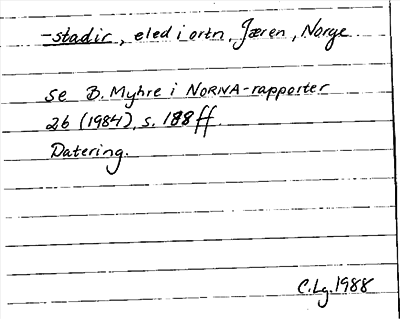 -stadir, eled i ortn, Jæren, Norge
se B. Myhre i NORNA-rapporter
26 (1984), s. 188 ff.
Datering.
C.Lg.1988